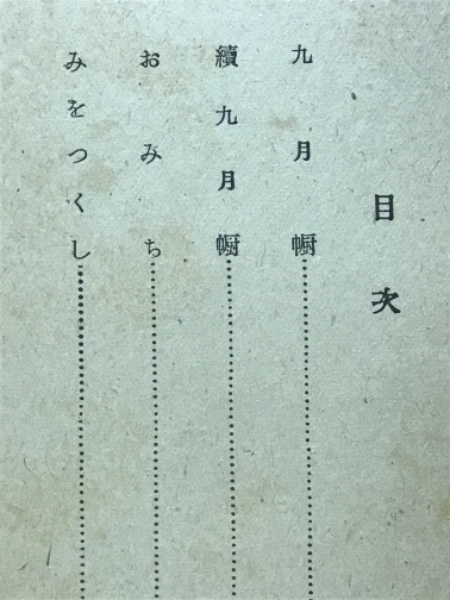 目次
九月幮
續九月幮
おみち
みをつくし